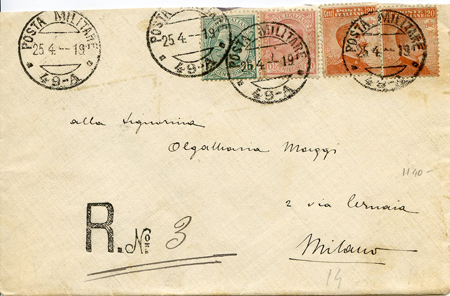 POSTA MILITARE
25.4.--19
49-A
POSTA MILITARE
25.4.--19
49-A
POSTA MILITARE
25.4.--19
49-A
POSTA MILITARE
25.4.--19
49-A
20 20
alla Signorina
Maggi
1140-
2 via Cernaia
R. No. 3
Milano